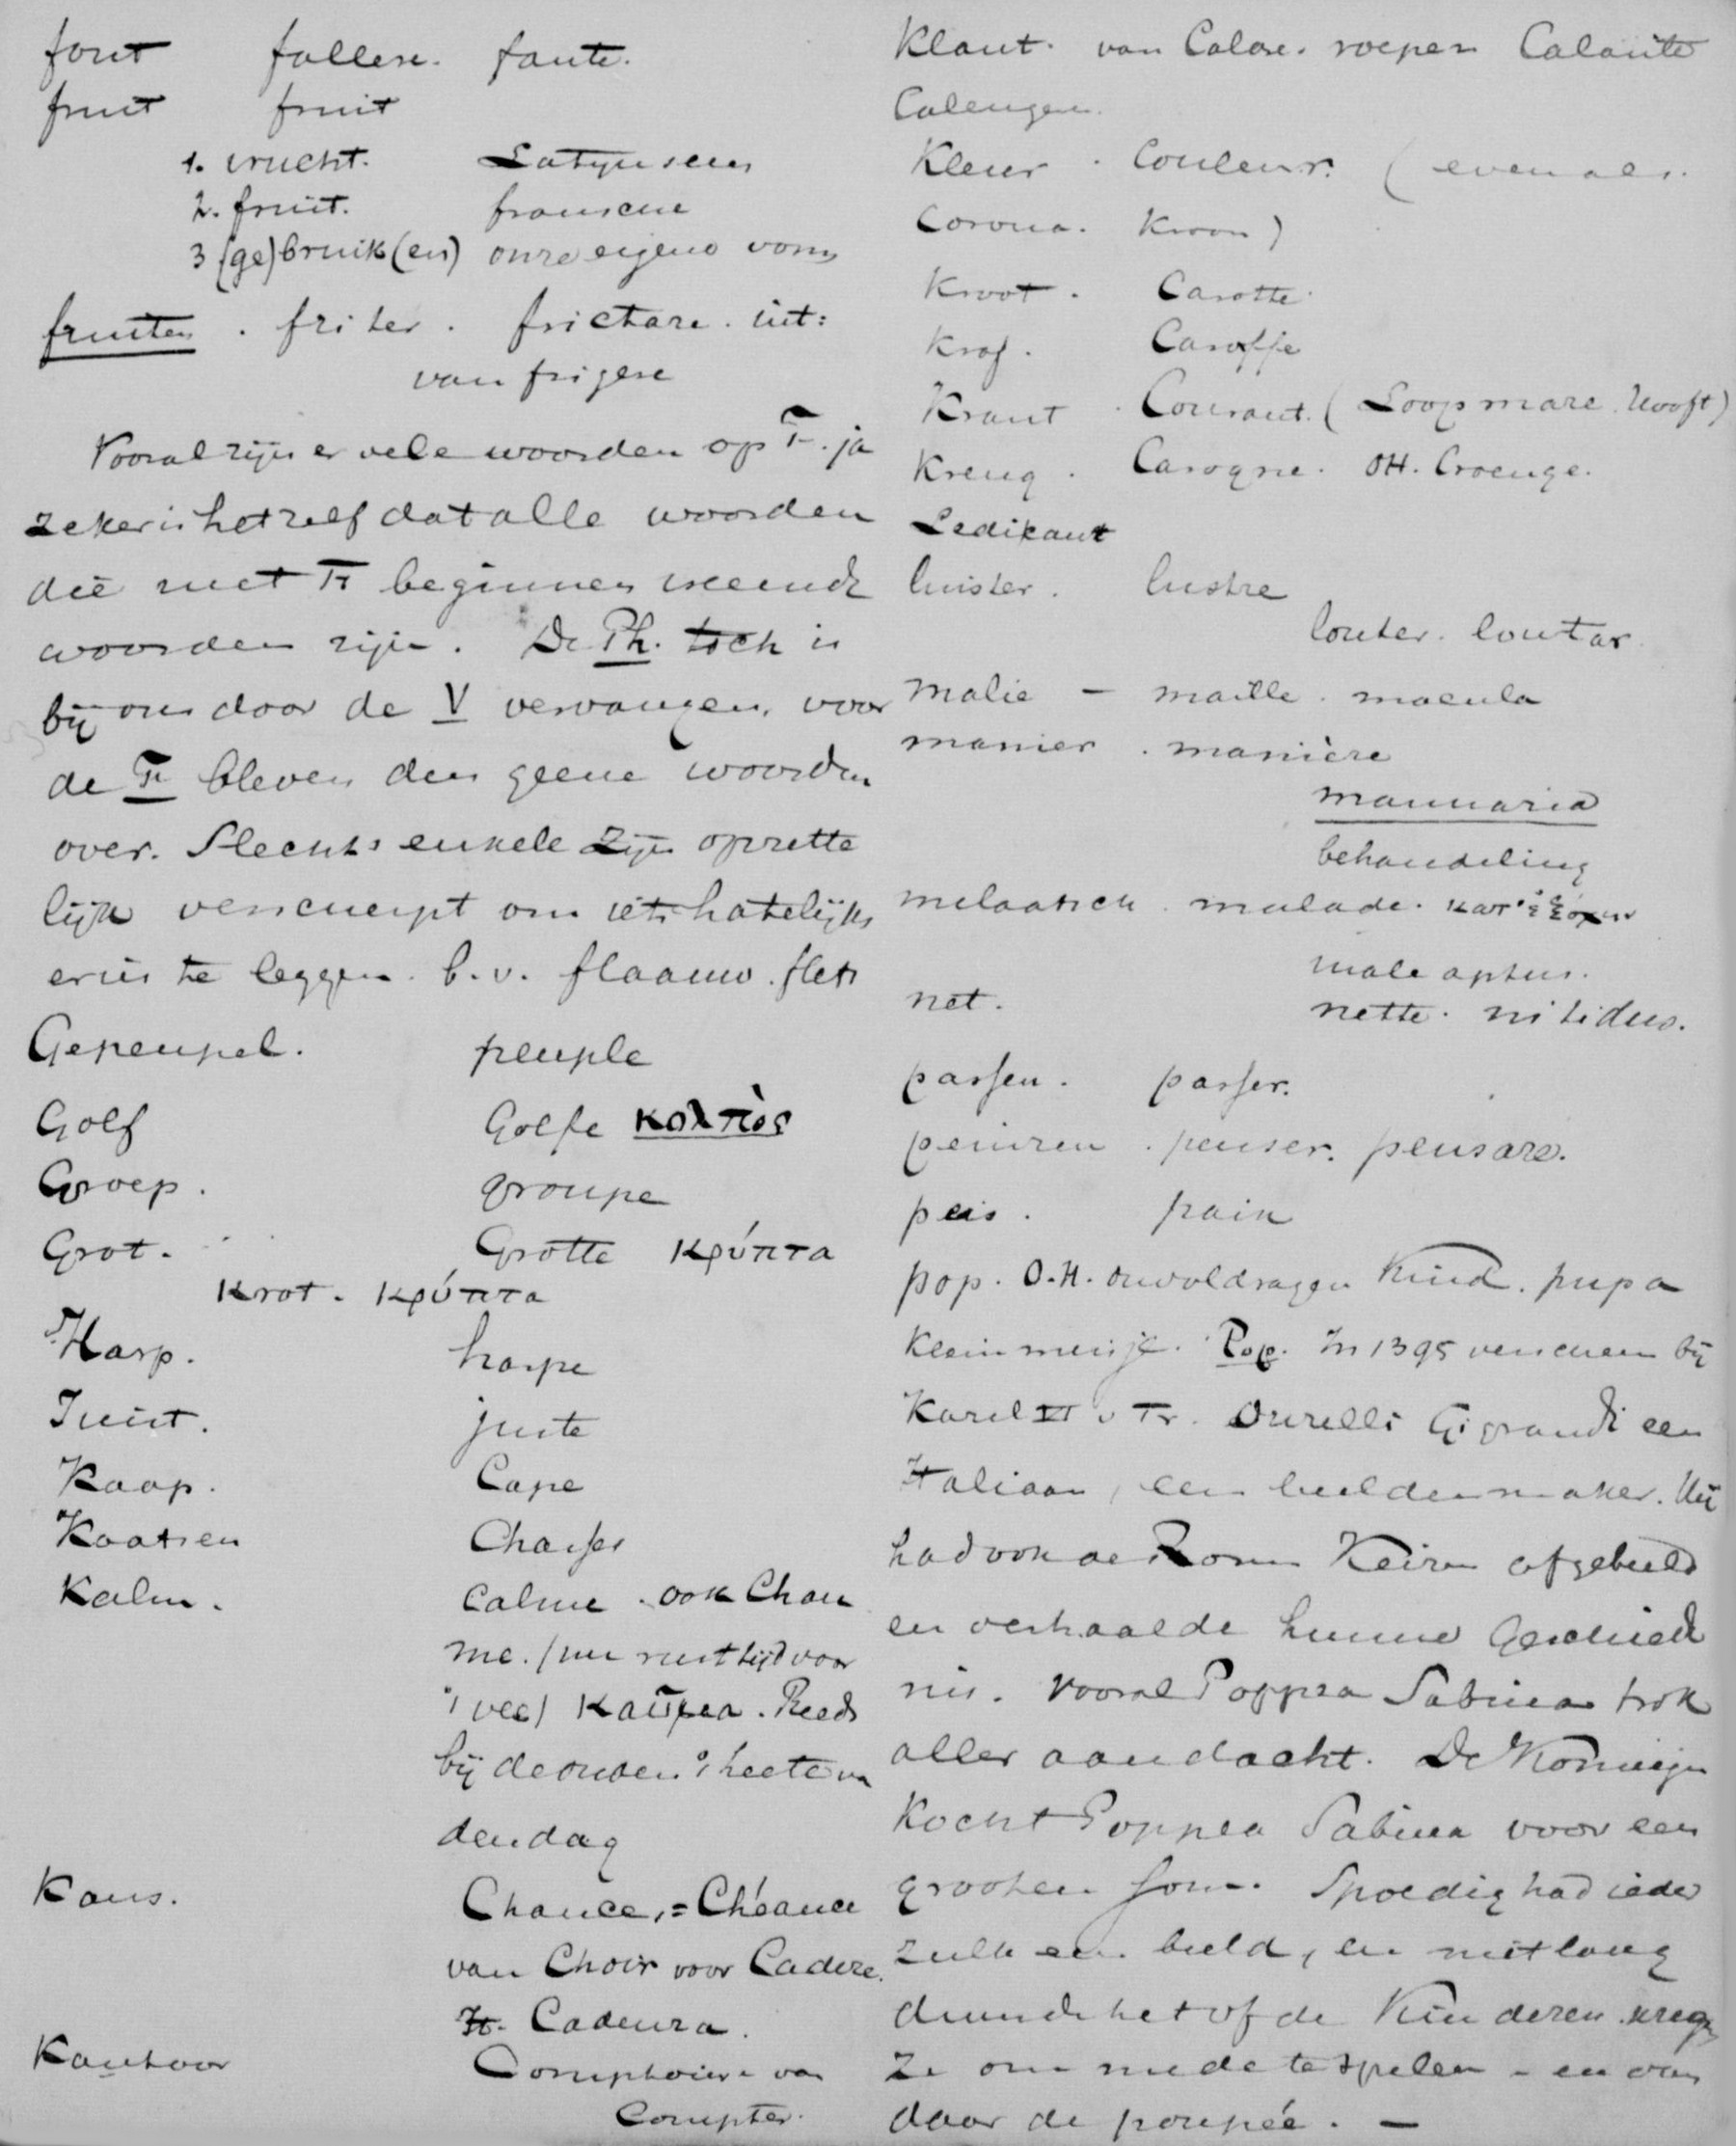 fout fallere. faute.
fruit fruit
1. vrucht. Latijnschen
2. fruit. fransche
3 (ge)bruik(en) onze eigene vorm
fruiten . friter . frictare. uit:
van frigere
Vooral zijn er vele woorden op F. ja
zeker is het zelf dat alle woorden
die met F beginnen vreemde
woorden zijn. De Ph. toch is
bij ons door de V vervangen, voor
de F bleven den geene woorden
over. Slechts enkele zijn opzette
lijk verscherpt om iets hatelijks
erin te leggen. b.v. flaauw. flets
Gepeupel. peuple
Golf Golfe κολπὸς
Groep. groupe
Grot. Grotte κρύπτα
Krot. κρύπτα
Harp. harpe
Juist. juste
Kaap. Cape
Kaatsen Chasser
Kalm. Calme . ook Chau
me. (nu rusttijd voor
't vee) καῦμα. Reeds
bij de ouden 't heete van
den dag
Kans. Chance, = Chéance
van Choir voor Cadere.
It. Cadenza.
Kantoor Comptoire van
Compter.
Klant. van Calare. roepen Calante
Calengen.
Kleur . Couleur. (evenals.
Corona. Kroon)
Kroot . Carotte.
Kraf . Caraffe
Krant . Courant. (Loopmare. Hooft)
Kreng . Carogne. OH. Croenge.
Ledikant
luister . lustre
louter. loutar.
malie – maille . macula
manier . manière
mannaria
behandeling
melaatsch . malade. κατ' ἐξοχην
male aptus.
net. nette. nitidus.
passen . passer.
peinzen . penser. pensare.
peis . paix
pop. O.H. onvoldragen Kind. pupa
klein meisje. Pop. In 1395 verscheen bij
Karel VI v Fr. Ourelli Gigrandi een
Italiaan, een beeldenmaker. Hij
had ook de Rom Keizn afgebeeld
en verhaalde hunne Geschied
nis. Vooral Poppea Sabina trok
aller aandacht. De Koningin
kocht Poppea Sabina voor een
grooten som. Spoedig had ieder
zulk een beeld, en niet lang
duurde het of de Kinderen kregen
ze om mede te spelen – en van
daar de poupée. –